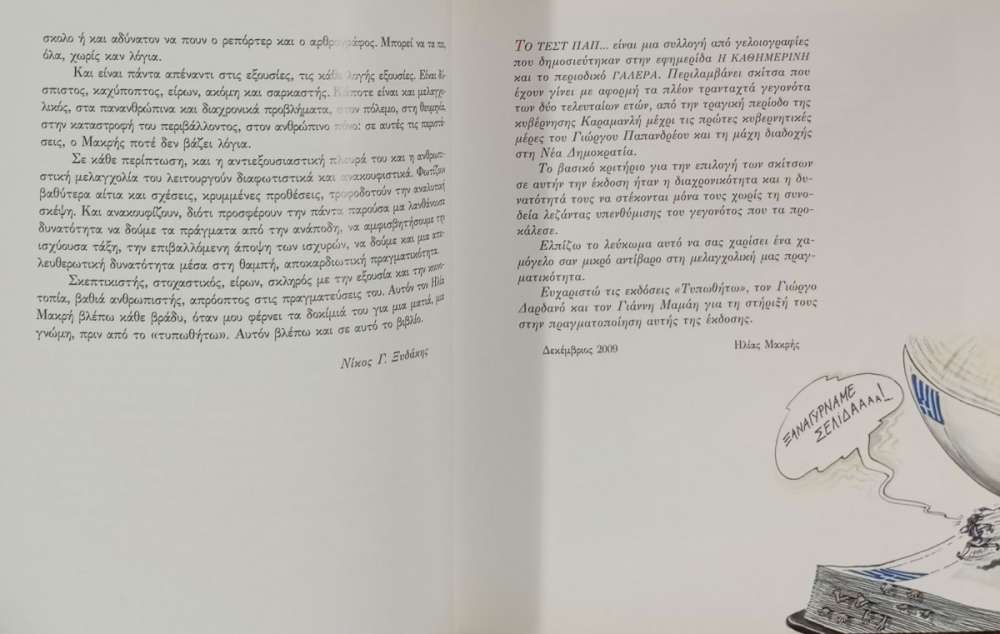 σκολο ή και αδύνατον να πουν ο ρεπόρτερ και ο αρθρογράφος. Μπορεί να τα πει
όλα, χωρίς καν λόγια.
Και είναι πάντα απέναντι στις εξουσίες, τις κάθε λογής εξουσίες. Είναι δύ-
σπιστος, καχύποπτος, είρων, ακόμη και σαρκαστής. Κάποτε είναι και μελαγχο-
λικός, στα πανανθρώπινα και διαχρονικά προβλήματα, στον πόλεμο, στη θαμπά,
στην καταστροφή του περιβάλλοντος, στον ανθρώπινο πόνο: σε αυτές τις περιπτώ-
σεις, ο Μακρής ποτέ δεν βάζει λόγια.
Σε κάθε περίπτωση, και η αντιεξουσιαστική πλευρά του και η ανθρωπι-
στική μελαγχολία του λειτουργούν διαφωτιστικά και ανακουφιστικά. Φωτίζουν
βαθύτερα αίτια και σχέσεις, κρυμμένες προθέσεις, τροφοδοτούν την αναλυτική
σκέψη. Και ανακουφίζουν, διότι προσφέρουν την πάντα παρούσα μα λανθάνουσα
δυνατότητα να δούμε τα πράγματα από την ανάποδη, να αμφισβητήσουμε την
ισχύουσα τάξη, την επιβαλλόμενη άποψη των ισχυρών, να δούμε και μια απε-
λευθερωτική δυνατότητα μέσα στη θαμπή, αποκαρδιωτική πραγματικότητα.
Σκεπτικιστής, στοχαστικός, είρων, σκληρός με την εξουσία και την κοινο-
τοπία, βαθιά ανθρωπιστής, απρόοπτος στις πραγματεύσεις του. Αυτόν τον Ηλία
Μακρή βλέπω κάθε βράδυ, όταν μου φέρνει τα δοκίμιά του για μια ματιά, μια
γνώμη, πριν από το «τυπωθήτω». Αυτόν βλέπω και σε αυτό το βιβλίο.
Νίκος Γ. Ξυδάκης
ΤΟ ΤΕΣΤ ΠΑΠ... είναι μια συλλογή από γελοιογραφίες
που δημοσιεύτηκαν στην εφημερίδα Η ΚΑΘΗΜΕΡΙΝΗ
και το περιοδικό ΓΑΛΕΡΑ. Περιλαμβάνει σκίτσα που
έχουν γίνει με αφορμή τα πλέον τρανταχτά γεγονότα
των δύο τελευταίων ετών, από την τραγική περίοδο της
κυβέρνησης Καραμανλή μέχρι τις πρώτες κυβερνητικές
μέρες του Γιώργου Παπανδρέου και τη μάχη διαδοχής
στη Νέα Δημοκρατία.
Το βασικό κριτήριο για την επιλογή των σκίτσων
σε αυτήν την έκδοση ήταν η διαχρονικότητα και η δυ-
νατότητά τους να στέκονται μόνα τους χωρίς τη συνο-
δεία λεζάντας υπενθύμισης του γεγονότος που τα προ-
κάλεσε.
Ελπίζω το λεύκωμα αυτό να σας χαρίσει ένα χα-
μόγελο σαν μικρό αντίβαρο στη μελαγχολική μας πραγ-
ματικότητα.
Ευχαριστώ τις εκδόσεις «Τυπωθήτω», τον Γιώργο
Δαρδανό και τον Γιάννη Μαμάη για τη στήριξή τους
στην πραγματοποίηση αυτής της έκδοσης.
Δεκέμβριος 2009 Ηλίας Μακρής
ΞΑΝΑΓΥΡΝΑΜΕ
ΣΕΛΙΔΑΑΑΑ!